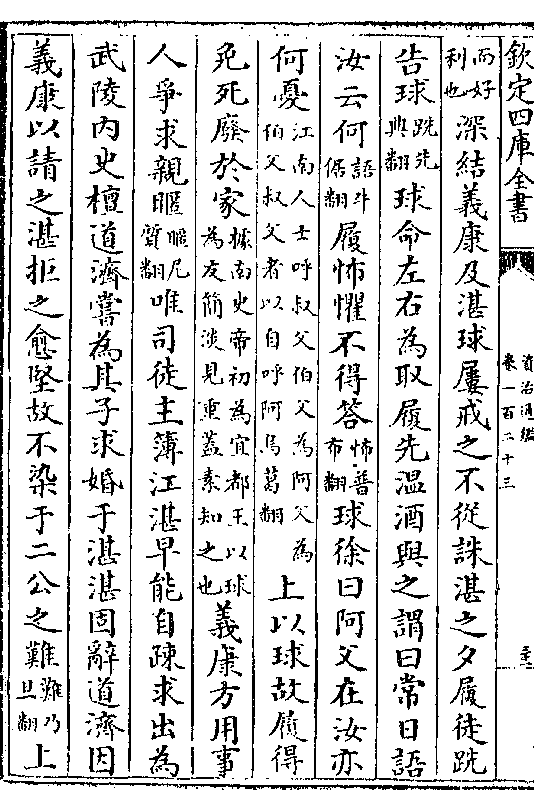 欽定四庫全書
資治通鑑
卷一百二十三
而好利也深結義康及湛球屢戒之不從誅湛之夕履徒跣
告球跣先典翻球命左右為取履先温酒與之謂曰常日語
汝云何語牛倨翻履怖懼不得答怖普布翻球徐曰阿父在汝亦
何憂江南人士呼叔父伯父為阿父為伯父叔父者以自呼阿烏葛翻上以球故履得
免死廢於家據南史帝初為宜都王以球為友簡淡見重蓋素知之也義康方用事
人爭求親暱暱尼質翻唯司徒主簿江湛早能自疎求出為
武陵内史檀道濟嘗為其子求婚于湛湛固辭道濟因
義康以請之湛拒之愈堅故不染于二公之難難乃旦翻上